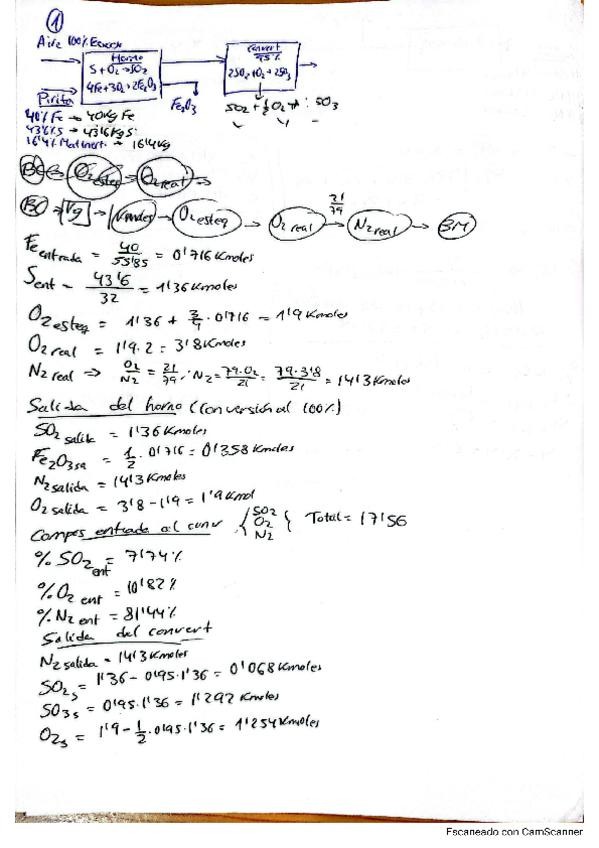 ①
Aire 100% Exceso
Horno
S+O₂→SO₂
4Fe+3O₂→2Fe₂O₃
Convert
95%
2SO₂+O₂→2SO₃
Pirita
Fe₂O₃
SO₂ + ½O₂ ⇌ SO₃
40% Fe → 40Kg Fe
43'6% S → 43'6Kg S
16'4% Mat inert → 16'4Kg
BC → O₂ esteq → O₂ real →
BC → Kg → Kmoles → O₂ esteq → O₂ real → 21/79 N₂ real → BM
Fe entrada = 40/55'85 = 0'716 Kmoles
S ent = 43'6/32 = 1'36 Kmoles
O₂ esteq = 1'36 + 3/4 · 0'716 = 1'9 Kmoles
O₂ real = 1'9·2 = 3'8 Kmoles
N₂ real ⇒ O₂/N₂ = 21/79 ; N₂ = 79·O₂/21 = 79·3'8/21 = 14'3 Kmoles
Salida del horno (Conversión al 100%)
SO₂ salida = 1'36 Kmoles
Fe₂O₃ sa = 1/2 · 0'716 = 0'358 Kmoles
N₂ salida = 14'3 Kmoles
O₂ salida = 3'8 - 1'9 = 1'9 Kmol
Compos entrada al conv { SO₂ O₂ N₂ } Total = 17'56
% SO₂ ent = 7'74%
% O₂ ent = 10'82%
% N₂ ent = 81'44%
Salida del convert
N₂ salida = 14'3 Kmoles
SO₂ s = 1'36 - 0'95·1'36 = 0'068 Kmoles
SO₃ s = 0'95·1'36 = 1'292 Kmoles
O₂ s = 1'9 - 1/2 · 0'95·1'36 = 1'254 Kmoles
Escaneado con CamScanner